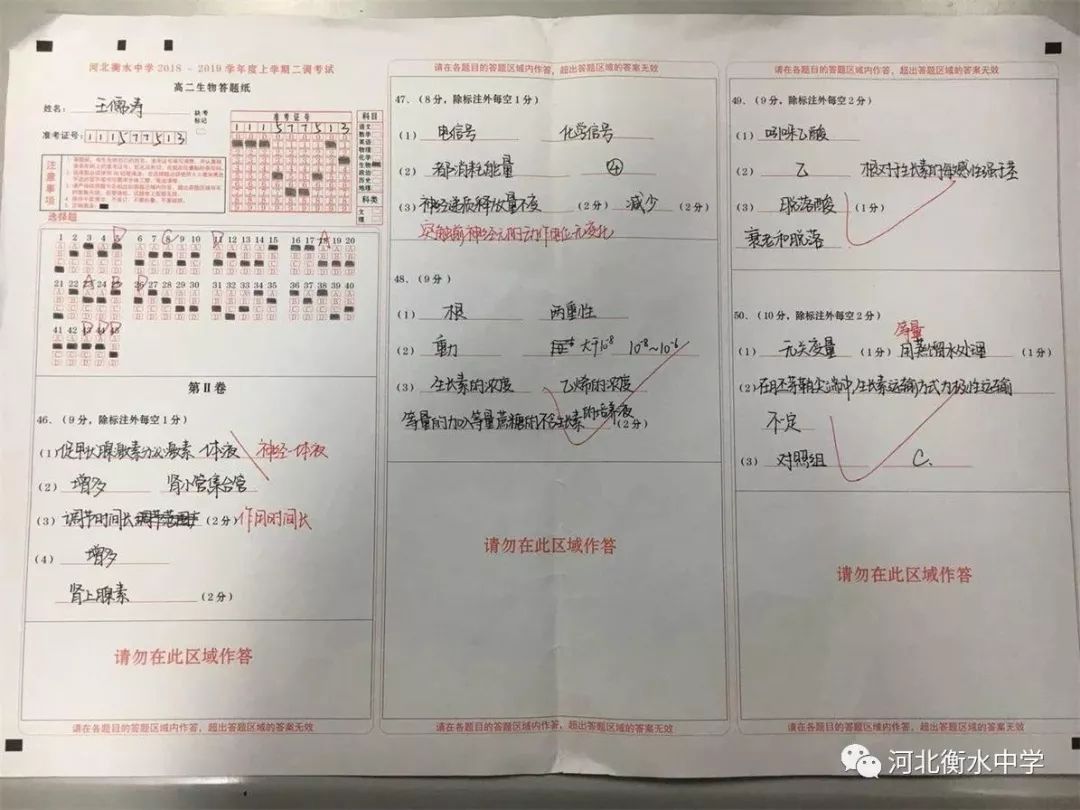 河北衡水中学2018-2019学年度上学期二调考试
高二生物答题纸
姓名：
缺考标记
准考证号： 111577513
准考证号
111577513
科目
语文
数学
英语
物理
化学
生物
政治
历史
地理
科类
文
理
注意事项
选择题
1 2 3 4 5 6 7 8 9 10 11 12 13 14 15 16 17 18 19 20
21 22 23 24 25 26 27 28 29 30 31 32 33 34 35 36 37 38 39 40
41 42 43 44 45
第Ⅱ卷
46.（9分，除标注外每空1分）
(1) 促甲状腺激素分泌激素 体液 神经-体液
(2) 增多 肾小管集合管
(3) 调节时间长 （2分） 作用时间长
(4) 增多
肾上腺素 （2分）
请勿在此区域作答
请在各题目的答题区域内作答，超出答题区域的答案无效
请在各题目的答题区域内作答，超出答题区域的答案无效
47.（8分，除标注外每空1分）
(1) 电信号 化学信号
(2) 都消耗能量 ④
(3) 神经递质释放量不变 （2分） 减少 （2分）
突触前神经元的动作电位无变化
48.（9分）
(1) 根 两重性
(2) 重力 大于10-8 10-8~10-6
(3) 生长素的浓度 乙烯的浓度
等量的加入等量蔗糖的不含生长素的培养液 （2分）
请勿在此区域作答
请在各题目的答题区域内作答，超出答题区域的答案无效
请在各题目的答题区域内作答，超出答题区域的答案无效
49.（9分，除标注外每空2分）
(1) 吲哚乙酸
(2) 乙 根对于生长素的敏感性强于茎
(3) 脱落酸 （1分）
衰老和脱落
50.（10分，除标注外每空2分）
等量
(1) 无关变量 （1分） 用蒸馏水处理 （1分）
(2) 在胚芽鞘尖端中，生长素运输方式为极性运输
不定
(3) 对照组 C.
请勿在此区域作答
请在各题目的答题区域内作答，超出答题区域的答案无效
河北衡水中学